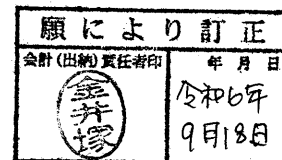 願により訂正
会計(出納)責任者印
年月日
金井塚
令和6年
9月18日